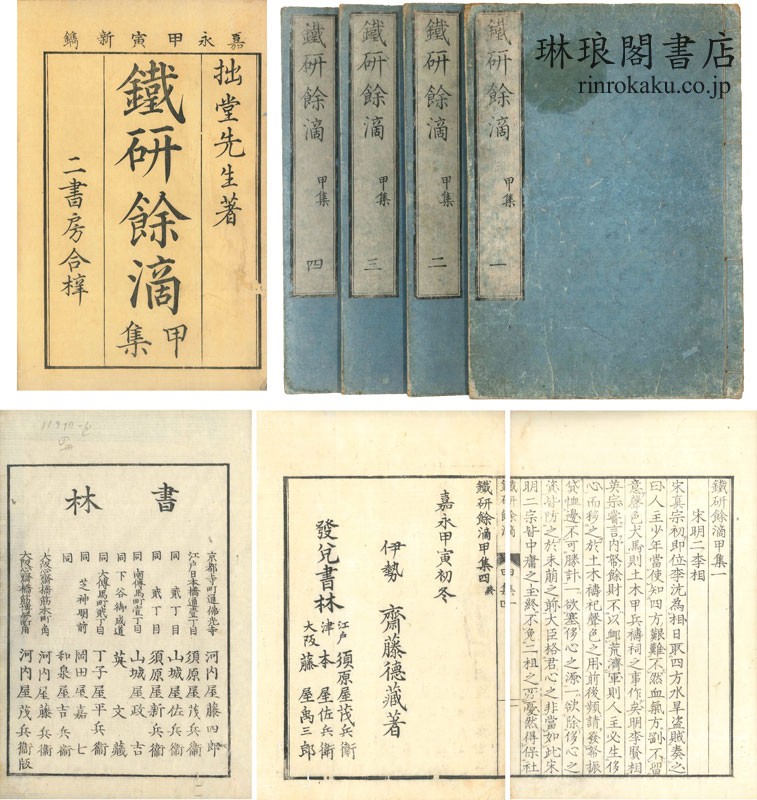 嘉永甲寅新鐫
拙堂先生著
鐵研餘滴
甲集
二書房合梓
鐵研餘滴 甲集 四
鐵研餘滴 甲集 三
鐵研餘滴 甲集 二
鐵研餘滴 甲集 一
琳琅閣書店
rinrokaku.co.jp
書林
京都寺町通佛光寺 河內屋藤四郎
江戶日本橋通壹丁目 須原屋茂兵衛
同 貳丁目 山城屋佐兵衛
同 貳丁目 須原屋新兵衛
同 南傳馬町壹丁目 山城屋政吉
同 下谷御成道 英文藏
同 大傳馬町貳丁目 丁子屋平兵衛
同 芝神明前 岡田屋嘉七
同 和泉屋吉兵衛
大阪心齋橋筋本町角 河內屋藤兵衛
大阪心齋橋筋博勞町角 河內屋茂兵衛版
鐵研餘滴甲集一
宋明二李相
宋真宗初即位李沆為相日取四方水旱盜賊奏之
曰人主少年當使知四方艱難不然血氣方剛不留
意聲色犬馬則土木甲兵禱祠之事作矣明李賢相
英宗嘗言內帑餘財不以卹荒濟軍則人主必生侈
心而移之於土木禱祀聲色之用前後頻請發帑振
貸恤邊不可勝計一欲塞侈心之源一欲除侈心之
資皆防之於未萌之前大臣格君心之非當如此宋
明二宗皆中庸之主終不免二祖之
憂然得保社
鐵研餘滴甲集四終
嘉永甲寅初冬
伊勢 齋藤德藏著
發兌書林
江戶 須原屋茂兵衛
津 本屋佐兵衛
大阪 藤屋禹三郎